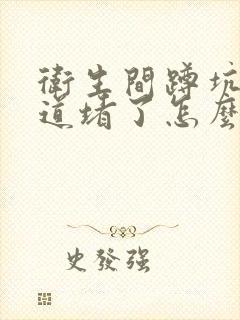 衛生間蹲坑
道堵了怎麼
史發强